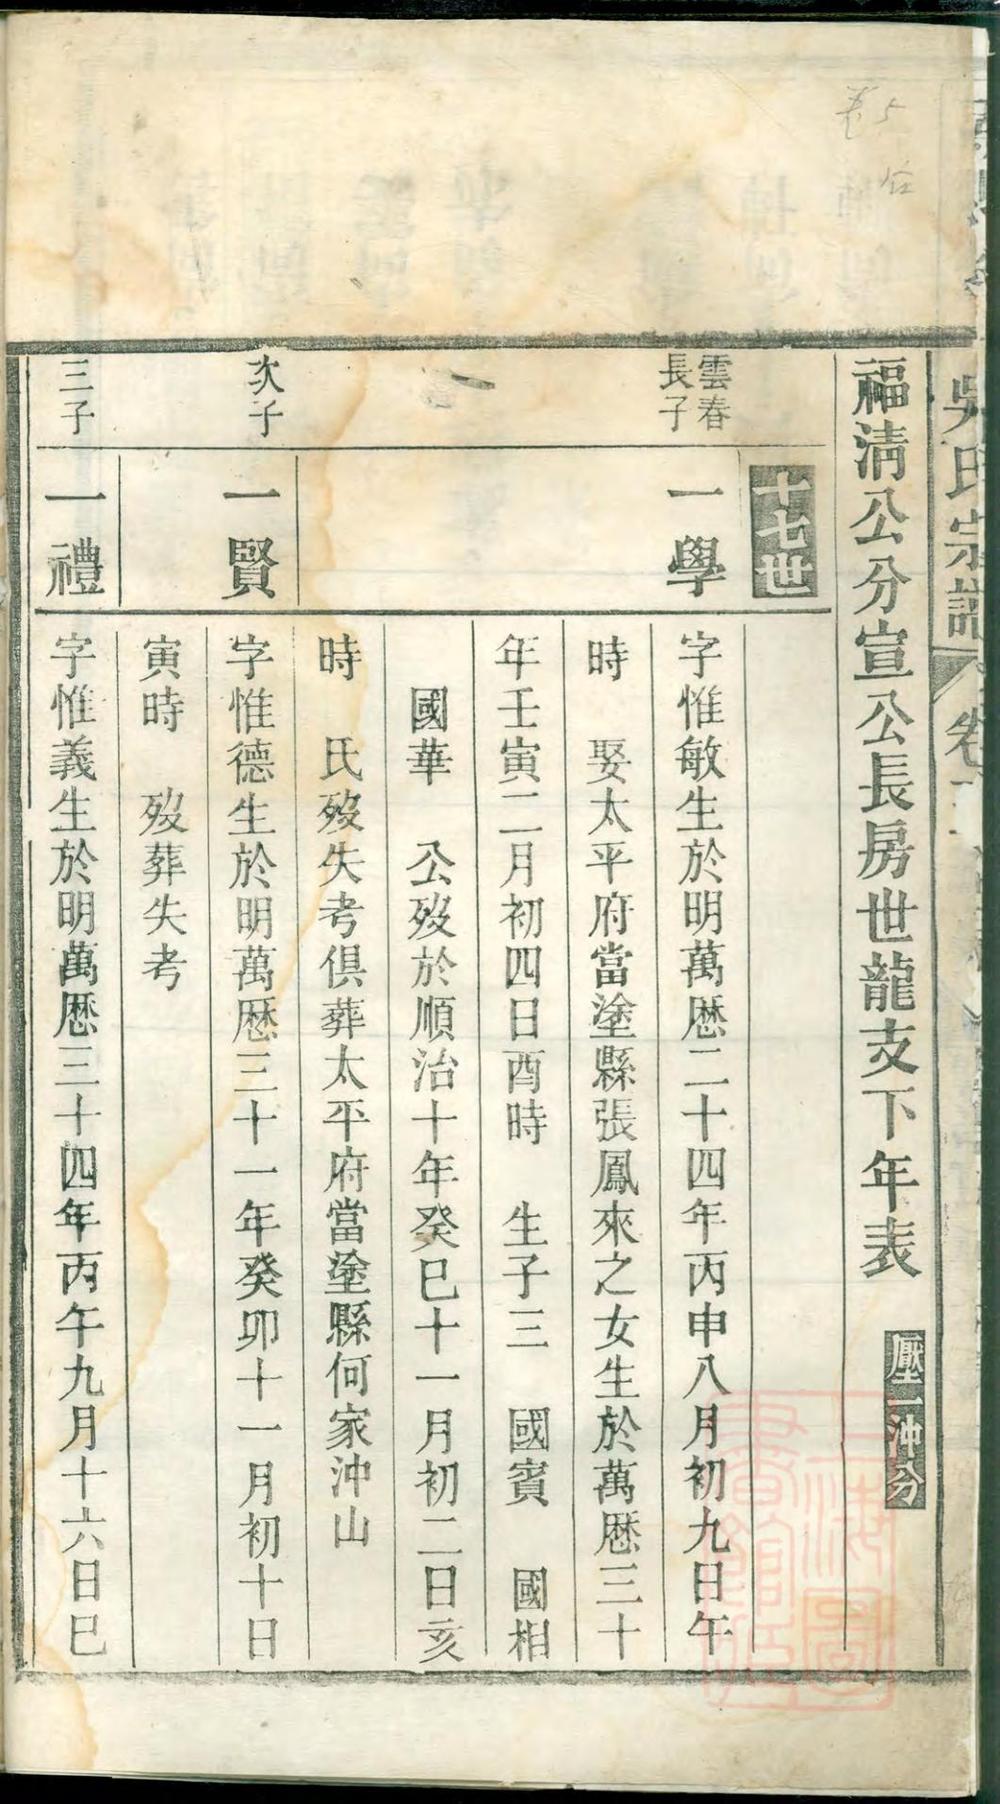 卷5
吳氏宗譜
卷
福清公分宣公長房世龍支下年表
壓一沖分
十七世
雲春
長子
一學
字惟敏生於明萬厯二十四年丙申八月初九日午
時 娶太平府當塗縣張鳳來之女生於萬厯三十
年壬寅二月初四日酉時 生子三 國賓 國相
國華 公歿於順治十年癸巳十一月初二日亥
時 氏歿失考俱葬太平府當塗縣何家沖山
次子
一賢
字惟德生於明萬厯三十一年癸卯十一月初十日
寅時 歿葬失考
三子
一禮
字惟義生於明萬厯三十四年丙午九月十六日巳
上海圖書館藏